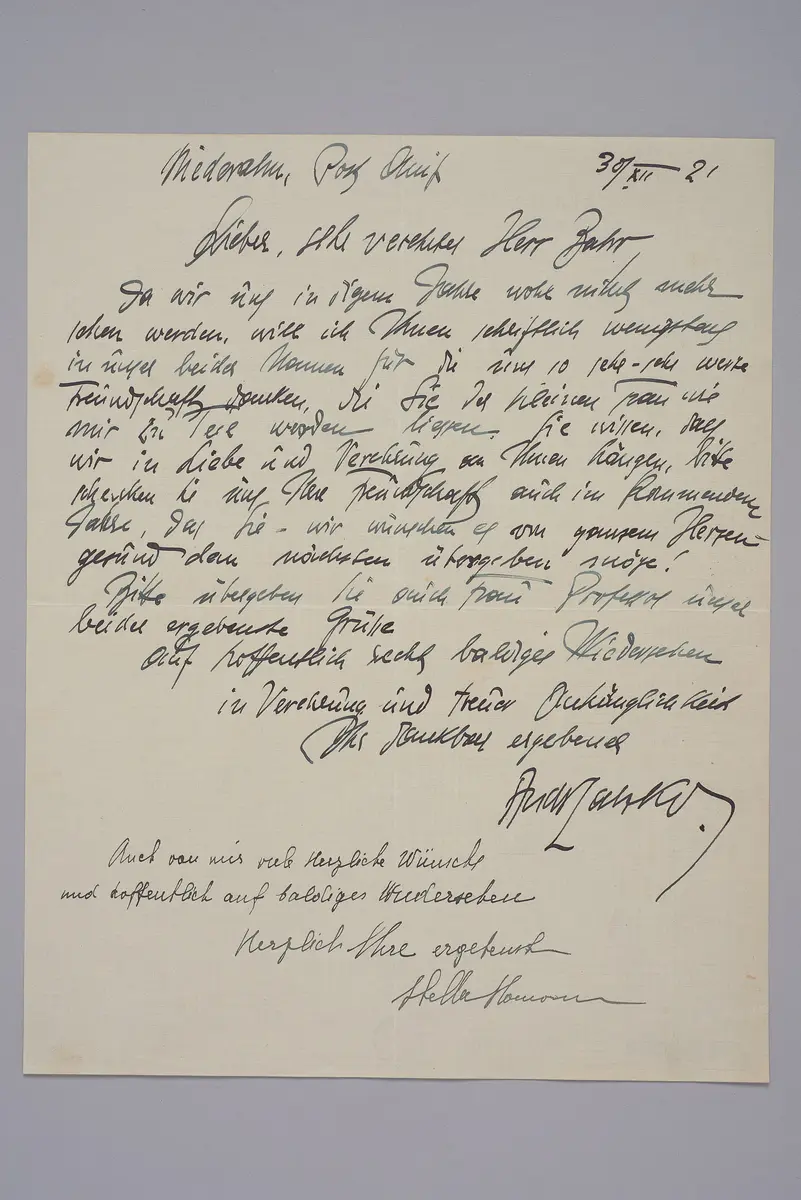 Niederalm, Post Anif 30/XII 21
Lieber, sehr verehrter Herr Bahr,
Da wir uns in diesem Jahre wohl nicht mehr
sehen werden, will ich Ihnen schriftlich wenigstens
in unser beider Namen für die uns so sehr-sehr werte
Freundschaft danken, die Sie der kleinen Frau wie
mir zu Teil werden liessen. Sie wissen, dass
wir in Liebe und Verehrung an Ihnen hängen, bitte
schenken Sie uns Ihre Freundschaft auch im kommenden
Jahre, das Sie – wir wünschen es von ganzem Herzen –
gesund dem nächsten übergeben möge!
Bitte übergeben Sie auch Frau Professor unser
beider ergebenste Grüsse
Auf hoffentlich recht baldiges Wiedersehen
in Verehrung und treuer Anhänglichkeit
Ihr dankbar ergebener
Auch von mir viele herzliche Wünsche
und hoffentlich auf baldiges Wiedersehen
Herzlich Ihre ergebenste
Stella